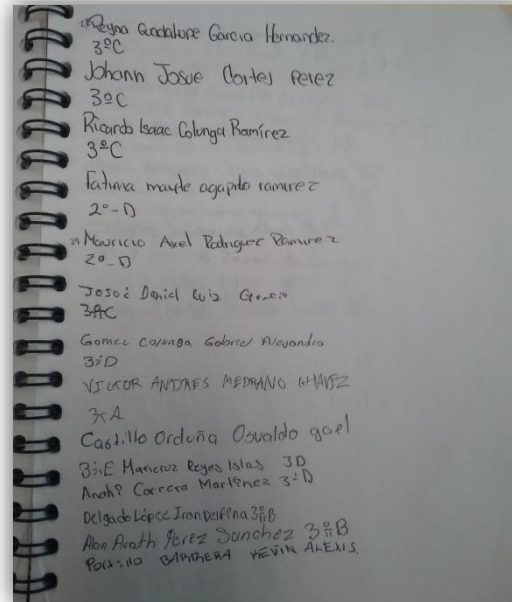 Reyna Guadalupe Garcia Hernandez.
3ºC
Johann Josue Cortes Perez
3ºC
Ricardo Isaac Colunga Ramírez
3ºC
Fatima mayte agapito ramirez
2º-D
Mauricio Axel Rodriguez Ramirez
2º-D
Josué Daniel Ruiz Garcia
3ºC
Gomez Colunga Gabriel Alejandro
3ºD
VICTOR ANDRES MEDRANO CHAVEZ
3ºA
Castillo Orduña Osvaldo gael
3ºE Maricruz Reyes Islas 3D
Anahi Correra Martínez 3ºD
Delgado López Iran Delfina 3ºB
Alan Arath Perez Sanchez 3ºB
Portillo BARRERA KEVIN ALEXIS.